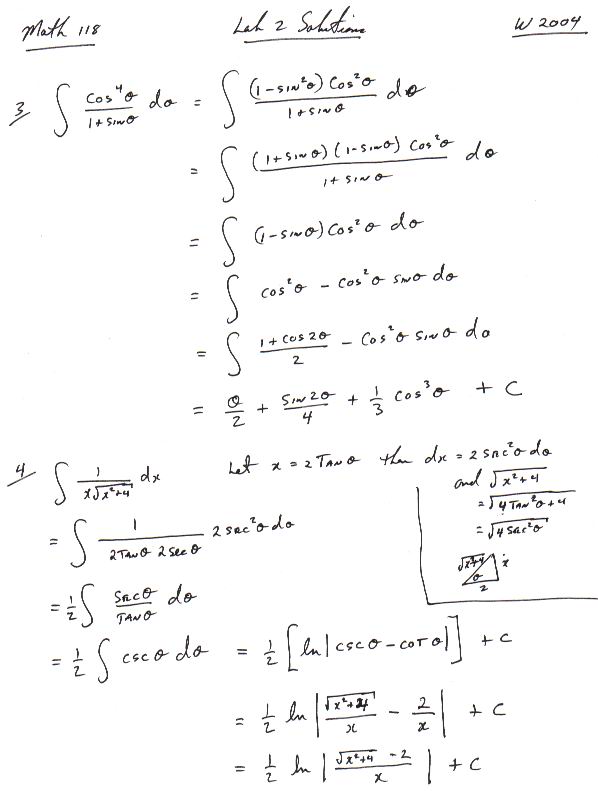 Math 118 Lab 2 Solutions W 2004
3 ∫ cos⁴θ/(1+sinθ) dθ = ∫ (1-sin²θ) cos²θ/(1+sinθ) dθ
= ∫ (1+sinθ)(1-sinθ) cos²θ/(1+sinθ) dθ
= ∫ (1-sinθ) cos²θ dθ
= ∫ cos²θ - cos²θ sinθ dθ
= ∫ (1+cos2θ)/2 - cos²θ sinθ dθ
= θ/2 + sin2θ/4 + 1/3 cos³θ + C
4 ∫ 1/(x√(x²+4)) dx Let x = 2Tanθ then dx = 2sec²θ dθ
and √(x²+4)
= √(4Tan²θ+4)
= √(4sec²θ)
√(x²+4) x
θ
2
= ∫ 1/(2Tanθ 2secθ) 2sec²θ dθ
= 1/2 ∫ secθ/Tanθ dθ
= 1/2 ∫ cscθ dθ = 1/2 [ln|cscθ - cotθ|] + C
= 1/2 ln |√(x²+4)/x - 2/x| + C
= 1/2 ln |(√(x²+4) - 2)/x| + C